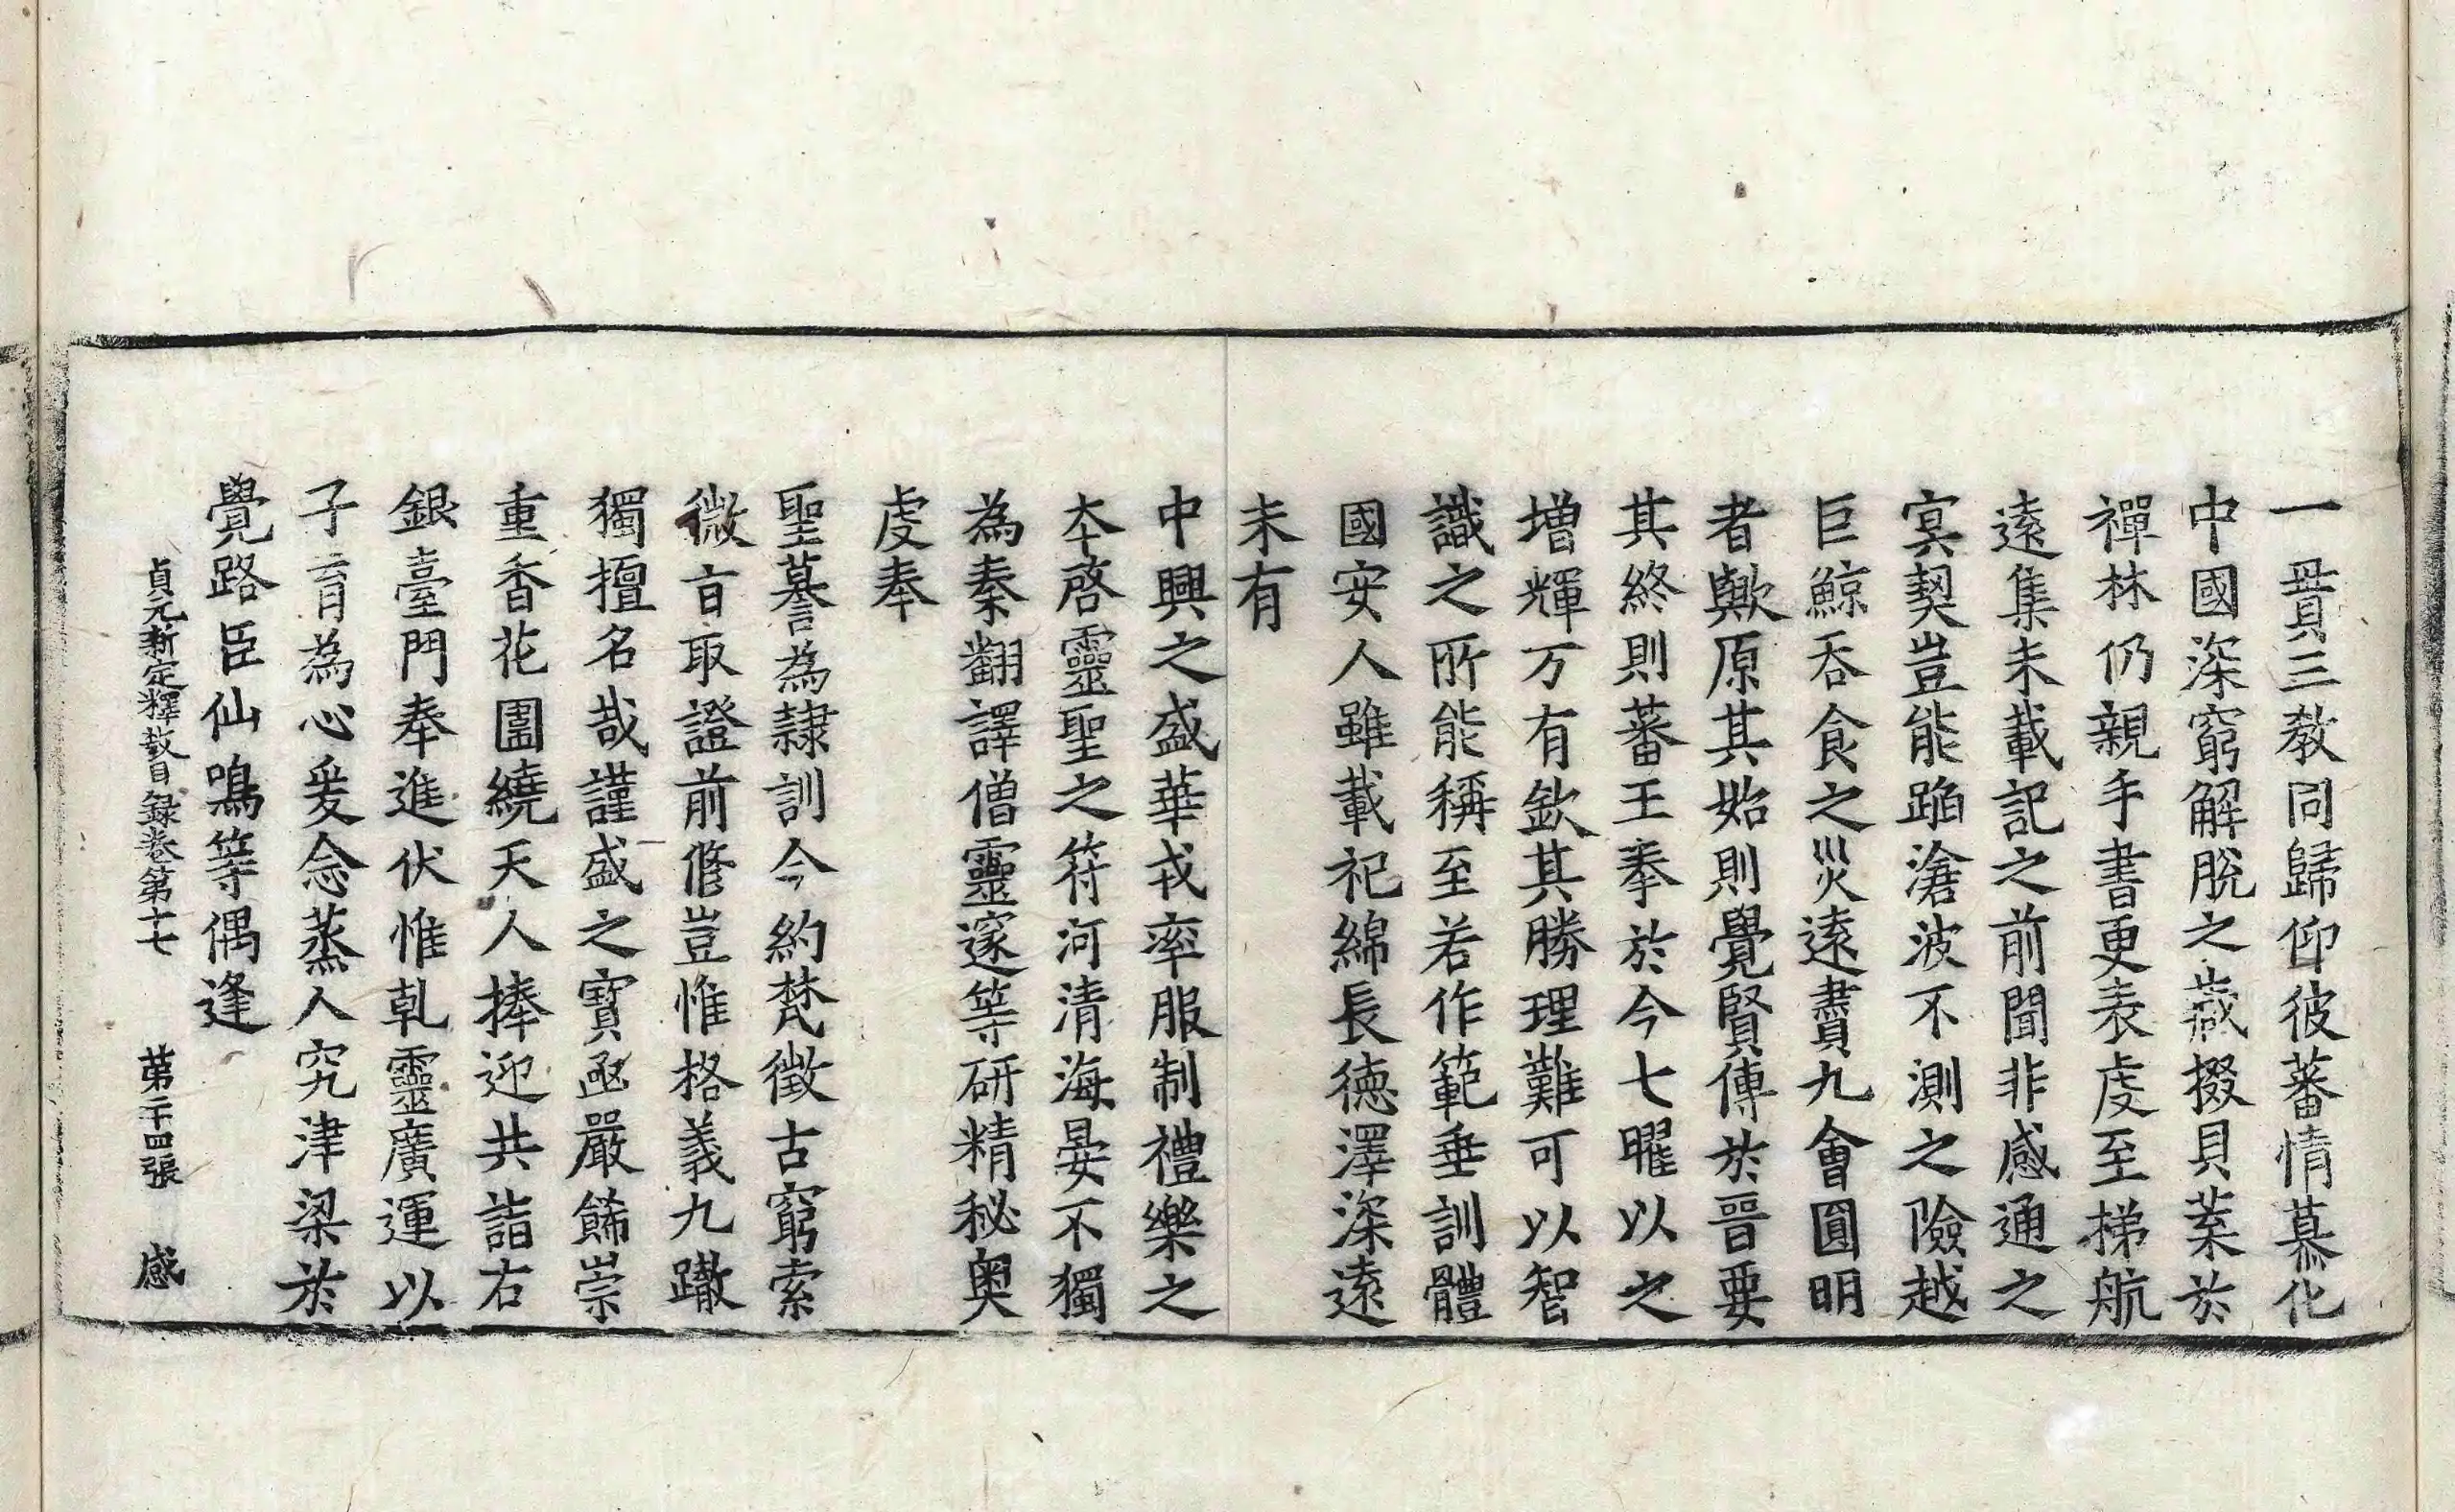 一毌三教同歸仰彼蕃情慕化
中國深窮解脫之歲掇貝業於
禪林仍親手書更表虔至梯航
遠集未載記之前聞非感通之
冥契豈能蹈滄波不測之險越
巨鯨吞食之災遠賷九會圓明
者歟原其始則覺賢傳於晉要
其終則蕃王奉於今七曜以之
增輝万有欽其勝理難可以智
識之所能稱至若作範垂訓體
國安人雖載祀綿長德澤深遠
未有
中興之盛華戎率服制禮樂之
夲啓靈聖之符河清海晏不獨
為秦翻譯僧靈邃等研精秘奥
虔奉
聖謩為隷訓今約梵徵古窮索
微㫖取證前脩豈惟格義九轍
獨擅名哉謹盛之寶函嚴飾崇
重香花圍繞天人捧迎共詣右
銀臺門奉進伏惟乹靈廣運以
子育為心爰念蒸人究津梁於
覺路臣仙鳴等偶逢
貞元新定釋教目録卷第十七 第二十四張 感